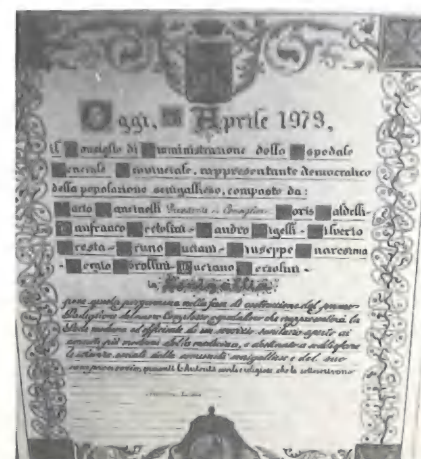 Oggi, Aprile 1979,
il Consiglio di Amministrazione dello Ospedale
Generale Provinciale, rappresentante democratico
della popolazione senigalliese, composto da:
Presidente - Consiglieri:
Gianfranco - Sandro - Silverio
Cresta - Bruno Luciani - Giuseppe
- Sergio - Luciano
Senigallia
pone questa pergamena nella fase di costruzione del primo
Padiglione del nuovo Complesso ospedaliero che rappresenterà la
sede moderna ed efficiente di un servizio sanitario aperto ai
concetti più moderni della medicina, e destinato a soddisfare
le istanze sociali della comunità senigalliese e del suo
comprensorio, presenti le Autorità civili e religiose che la sottoscrivono